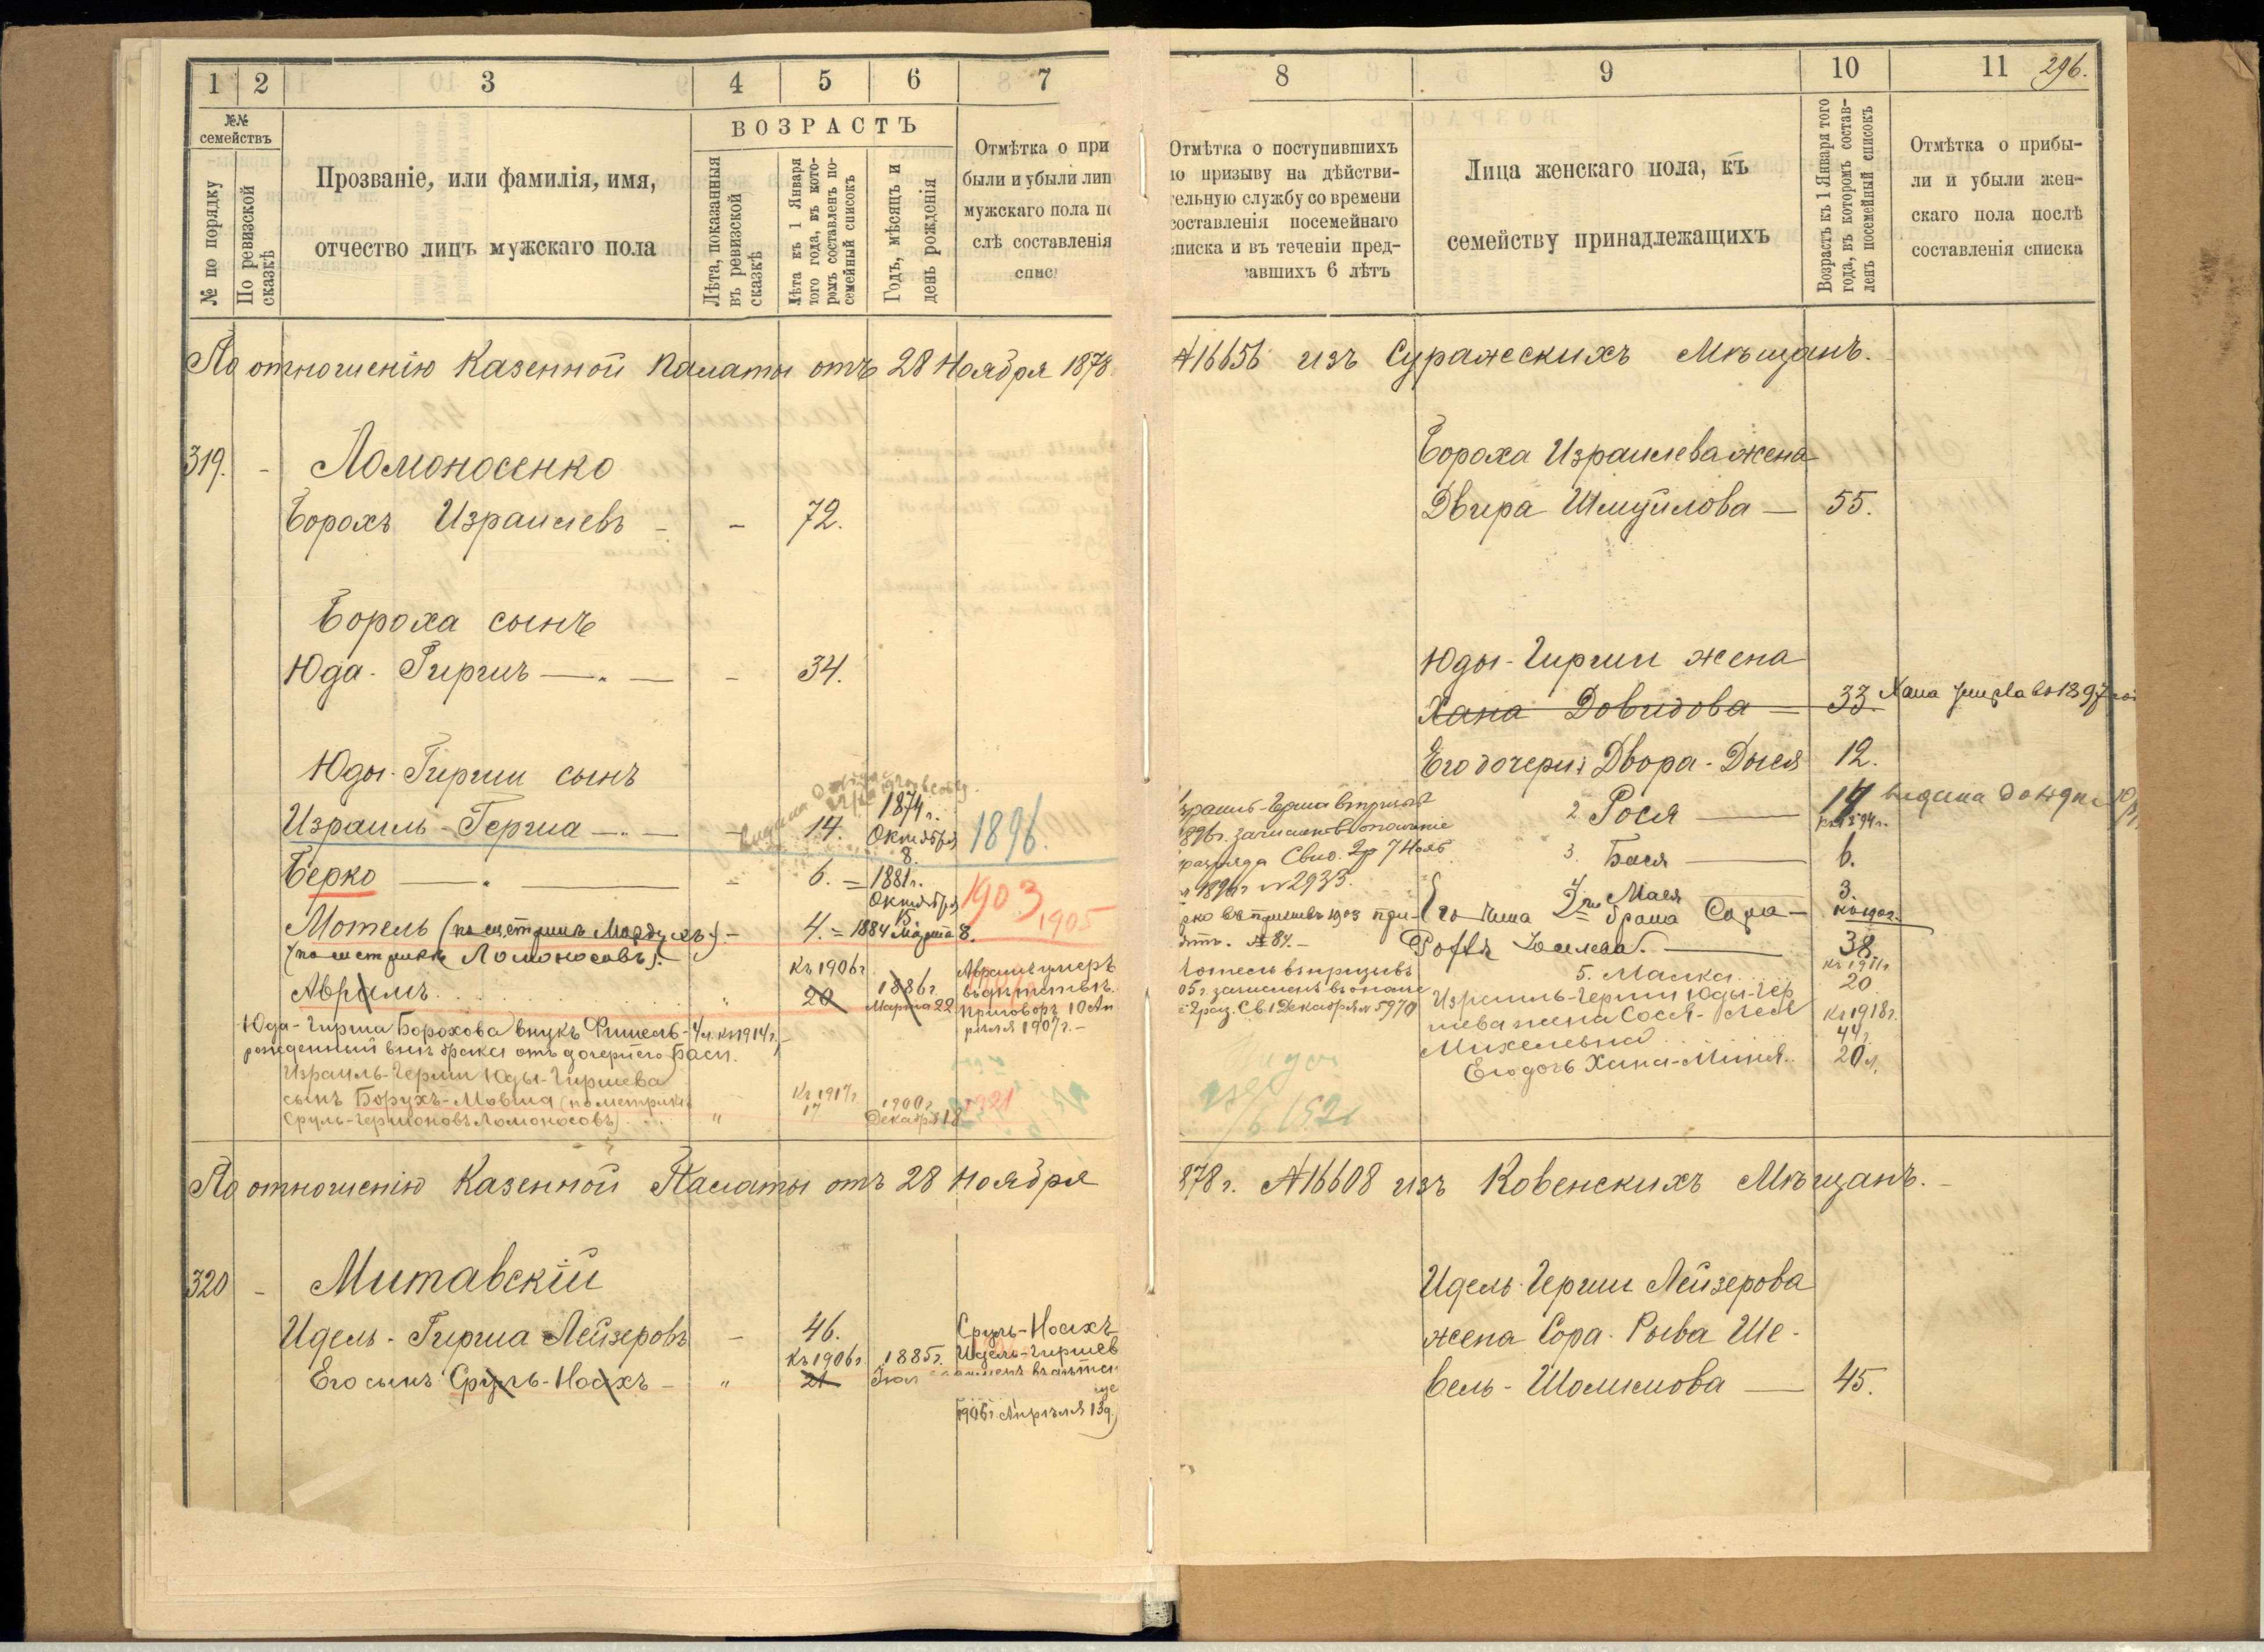 1 2 3 4 5 6 7
№№ семействъ
№ по порядку
По ревизской сказкѣ
Прозваніе, или фамилія, имя,
отчество лицъ мужскаго пола
ВОЗРАСТЪ
Лѣта, показанныя
въ ревизской
сказкѣ
Лѣта къ 1 Января
того года, въ кото-
ромъ составленъ по-
семейный списокъ
Годъ, мѣсяцъ и
день рожденія
Отмѣтка о при
были и убыли лиц
мужскаго пола по
слѣ составленія
спис
По отношенію Казенной Палаты отъ 28 Ноября 1878
319. - Ломоносенко
Борохъ Израилевъ - - 72.
Бороха сынъ
Юда-Гиршъ - 34.
Юды-Гирши сынъ
Израиль-Герша - 14. 1874 г. Октября 8. 1896.
Берко - 6. 1881 г. Октября 15 1903
Мотель (по метрикѣ Мордухъ). - 4. 1884 Марта 8. 1905
(по метрикѣ Ломоносовъ).
Абрамъ Къ 1906 г. 20 1886 г. Марта 22
Абрамъ умеръ
въ дѣтствѣ.
приговоръ 10 Ап
рѣля 1907 г. -
Юда-Гирша Борохова внукъ - 4 л. къ 1914 г.
рожденный внѣ брака отъ дочери его Баси.
Израиль-Герши Юды-Гиршева
сынъ Борухъ-Мовша (по метрикѣ Къ 1917 г. 1900 г. 1921
Сруль-Гершоновъ Ломоносовъ) " 17 Декабря 18
По отношенію Казенной Палаты отъ 28 Ноября
320 - Митавскій
Идель-Гирша Лейзеровъ - 46.
Его сынъ Сруль-Ноахъ - " Къ 1906 г. 21 1885 г.
Сруль-Ноахъ
Идель-Гиршев
1906 г. Апрѣля 13 д.
8 9 10 11 296.
Отмѣтка о поступившихъ
по призыву на дѣйстви-
тельную службу со времени
составленія посемейнаго
списка и въ теченіи пред-
авшихъ 6 лѣтъ
Лица женскаго пола, къ
семейству принадлежащихъ
Возрастъ къ 1 Января того
года, въ которомъ состав-
ленъ посемейный списокъ
Отмѣтка о прибы-
ли и убыли жен-
скаго пола послѣ
составленія списка
№16656 изъ Суражскихъ Мѣщанъ.
Бороха Израилева жена
Двира Шмуйлова - 55.
Юды-Гирши жена
Хана Довидова - 33. Хана умерла въ 1897
Его дочери: Двора-Дыся 12.
2 Рося - 14 Къ 1894 г.
3. Бася - 6.
4 Мася 3.
Его жена 2 по брака Сора -
38
5. Малка Къ 1911 г. 20
Израиль-Герши Юды-Гер
шева жена Сося-Леся Къ 1918 г.
Михелевна 44 г.
Его дочь Хана-Миня. 20 л.
1896 г. зачисленъ въ ополченіе
разряда Свид. 2 р 7 Нояб
1896 г № 2933.
№ 84. -
Мотель въ призывъ
05 г. зачисленъ въ ополче
2 раз. Св. 1 Декабря № 5970
878 г. №16608 изъ Ковенскихъ Мѣщанъ. -
Идель-Герши Лейзерова
жена Сора-Рыва Ше-
вель-Шоломова - 45.